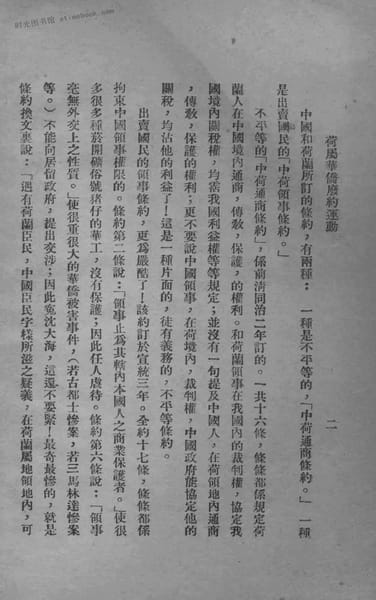 时光图书馆 etimebook.com
荷屬華僑廢約運動
二
中國和荷蘭所訂的條約，有兩種：　一種是不平等的，「中荷通商條約。」一種
是出賣國民的「中荷領事條約。」
不平等的「中荷通商條約」，係前清同治二年訂的。一共十六條，條條都係規定荷
蘭人在中國境內通商，傳教，保護，的權利。和荷蘭領事在我國內的裁判權，協定我
國境內關稅權，均霑我國利益權等等規定；並沒有一句提及中國人，在荷領地內通商
，傳教，保護的權利；更不要說中國領事，在荷境內，裁判權，中國政府能協定他的
關稅，均沾他的利益了！這是一種片面的，徒有義務的，不平等條約。
出賣國民的領事條約，更為嚴酷了！該約訂於宣統三年。全約十七條，條條都係
拘束中國領事權限的。條約第二條說：「領事止爲其轄內本國人之商業保護者。」使很
多很多種菸開礦俗號猪仔的華工，沒有保護；因此任人虐待。條約第六條說：「領事
毫無外交上之性質。」使很重很大的華僑被害事件，（若古都士慘案，若三馬林達慘案
等。）不能向居留政府，提出交涉；因此冤沈大海，這還不要緊！最奇最慘的，就是
條約換文裏說：「遇有荷蘭臣民，中國臣民字樣所滋之疑義，在荷蘭屬地領地內，可